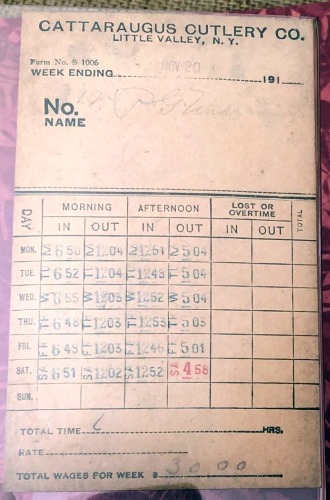 CATTARAUGUS CUTLERY CO.
LITTLE VALLEY, N. Y.
Form No. S 1006
WEEK ENDING NOV 20 191
No.
NAME
DAY MORNING AFTERNOON LOST OR OVERTIME TOTAL
IN OUT IN OUT IN OUT
MON. M 6 50 M 12 04 M 12 51 M 5 04
TUE. TU 6 52 TU 12 04 TU 12 49 TU 5 04
WED. W 6 55 W 12 03 W 12 52 W 5 04
THU. TH 6 48 TH 12 03 TH 12 53 TH 5 03
FRI. FR 6 49 FR 12 03 FR 12 46 FR 5 01
SAT. SA 6 51 SA 12 02 SA 12 52 SA 4 58
SUN.
TOTAL TIME 6 HRS.
RATE
TOTAL WAGES FOR WEEK $ 30 00